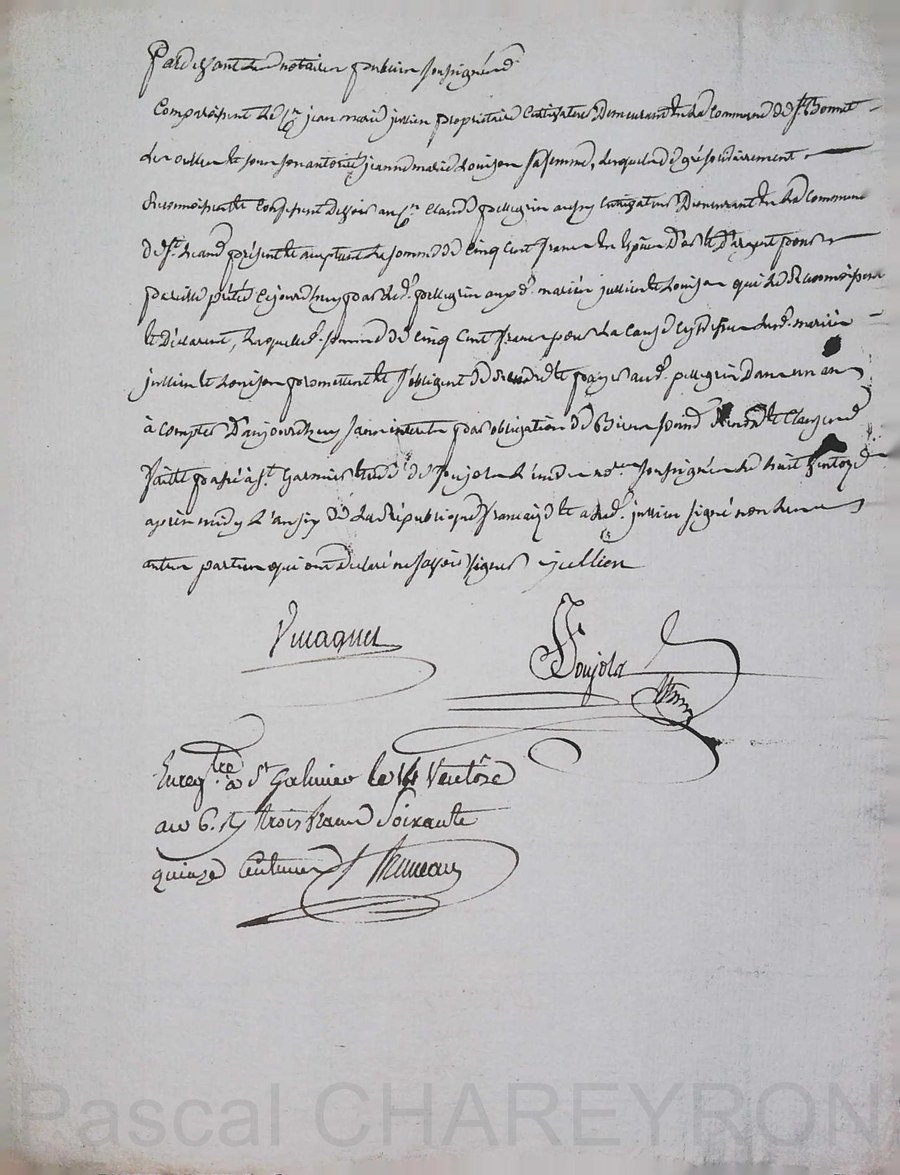 Pardevant les notaires publics soussignés
Comparoissent le Cn jean marie jullien propriétaire Cultivateur Demeurant en la Commune de St Bonnet
les oulles et sous son autorité jeanne marie Louison sa femme, lesquels de gré solidairement
Reconnoissent et Confessent Devoir au Cn Claude pellegrin aussy Cultivateur Demeurant en la Commune
de St présent et acceptant la somme de Cinq Cent francs en Espèces D'or et D'argent pour
pareille prêtée Cejourdhuy par led. pellegrin auxd. mariés jullien et Louison qui le Reconnoissent
et Déclarent, laquelle somme de Cinq Cent francs pour la Cause Cydessus lesd. mariés
jullien et Louison promettent et s'obligent de Rendre et payer aud. pellegrin Dans un an
à compter D'aujourdhuy sans interets par obligation de Biens et Clauses
fait et passé à St Galmier Etude de Soujola L'un des nores soussignés le huit Ventoze
après midy L'an six de la République francaise et a led. jullien signé non les
autres parties qui ont declaré ne savoir signer jullien
Soujola
Enregtré à St Galmier le 14 Ventôse
an 6. rç trois francs Soixante
quinze Centimes
Pascal CHAREYRON